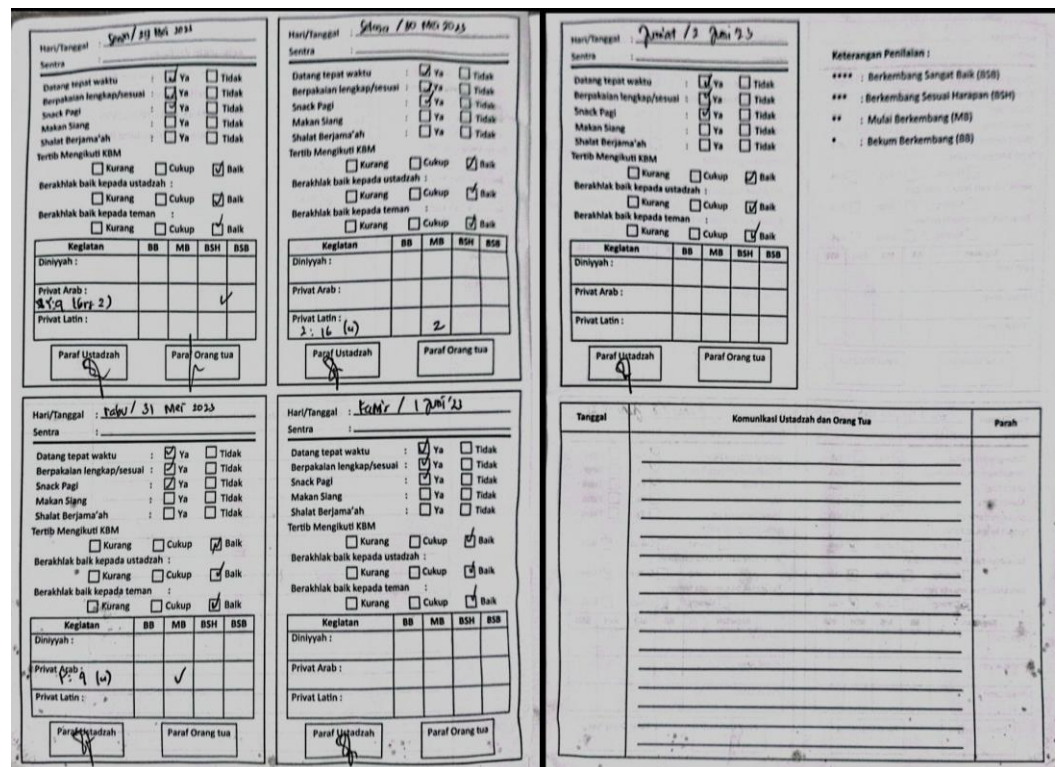 Hari/Tanggal : Senin / 29 Mei 2023
Sentra :
Datang tepat waktu : Ya Tidak
Berpakaian lengkap/sesuai : Ya Tidak
Snack Pagi : Ya Tidak
Makan Siang : Ya Tidak
Shalat Berjama'ah : Ya Tidak
Tertib Mengikuti KBM
Kurang Cukup Baik
Berakhlak baik kepada ustadzah :
Kurang Cukup Baik
Berakhlak baik kepada teman :
Kurang Cukup Baik
Kegiatan BB MB BSH BSB
Diniyyah :
Privat Arab :
Privat Latin :
Paraf Ustadzah Paraf Orang tua
Hari/Tanggal : Selasa / 30 Mei 2023
Sentra :
Datang tepat waktu : Ya Tidak
Berpakaian lengkap/sesuai : Ya Tidak
Snack Pagi : Ya Tidak
Makan Siang : Ya Tidak
Shalat Berjama'ah : Ya Tidak
Tertib Mengikuti KBM
Kurang Cukup Baik
Berakhlak baik kepada ustadzah :
Kurang Cukup Baik
Berakhlak baik kepada teman :
Kurang Cukup Baik
Kegiatan BB MB BSH BSB
Diniyyah :
Privat Arab :
Privat Latin :
2: 16 (u) 2
Paraf Ustadzah Paraf Orang tua
Hari/Tanggal : Rabu / 31 Mei 2023
Sentra :
Datang tepat waktu : Ya Tidak
Berpakaian lengkap/sesuai : Ya Tidak
Snack Pagi : Ya Tidak
Makan Siang : Ya Tidak
Shalat Berjama'ah : Ya Tidak
Tertib Mengikuti KBM
Kurang Cukup Baik
Berakhlak baik kepada ustadzah :
Kurang Cukup Baik
Berakhlak baik kepada teman :
Kurang Cukup Baik
Kegiatan BB MB BSH BSB
Diniyyah :
Privat Arab :
9 (u)
Privat Latin :
Paraf Ustadzah Paraf Orang tua
Hari/Tanggal : Kamis / 1 Juni '23
Sentra :
Datang tepat waktu : Ya Tidak
Berpakaian lengkap/sesuai : Ya Tidak
Snack Pagi : Ya Tidak
Makan Siang : Ya Tidak
Shalat Berjama'ah : Ya Tidak
Tertib Mengikuti KBM
Kurang Cukup Baik
Berakhlak baik kepada ustadzah :
Kurang Cukup Baik
Berakhlak baik kepada teman :
Kurang Cukup Baik
Kegiatan BB MB BSH BSB
Diniyyah :
Privat Arab :
Privat Latin :
Paraf Ustadzah Paraf Orang tua
Hari/Tanggal : Jum'at / 2 Juni '23
Sentra :
Datang tepat waktu : Ya Tidak
Berpakaian lengkap/sesuai : Ya Tidak
Snack Pagi : Ya Tidak
Makan Siang : Ya Tidak
Shalat Berjama'ah : Ya Tidak
Tertib Mengikuti KBM
Kurang Cukup Baik
Berakhlak baik kepada ustadzah :
Kurang Cukup Baik
Berakhlak baik kepada teman :
Kurang Cukup Baik
Kegiatan BB MB BSH BSB
Diniyyah :
Privat Arab :
Privat Latin :
Paraf Ustadzah Paraf Orang tua
Keterangan Penilaian :
**** : Berkembang Sangat Baik (BSB)
*** : Berkembang Sesuai Harapan (BSH)
** : Mulai Berkembang (MB)
* : Bekum Berkembang (BB)
Tanggal Komunikasi Ustadzah dan Orang Tua Parah